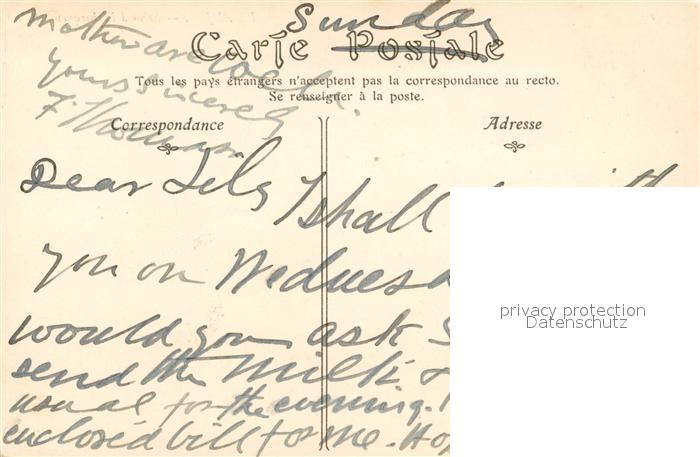 Sunday
Carte Postale
Tous les pays étrangers n'acceptent pas la correspondance au recto.
Se renseigner à la poste.
Correspondance
Adresse
Dear Lily I shall with
you on Wednesd
would you ask S
send the Milk
usual for the evening.
enclosed bill for me. Hop
mother are well.
Yours sincerely
F.
privacy protection
Datenschutz